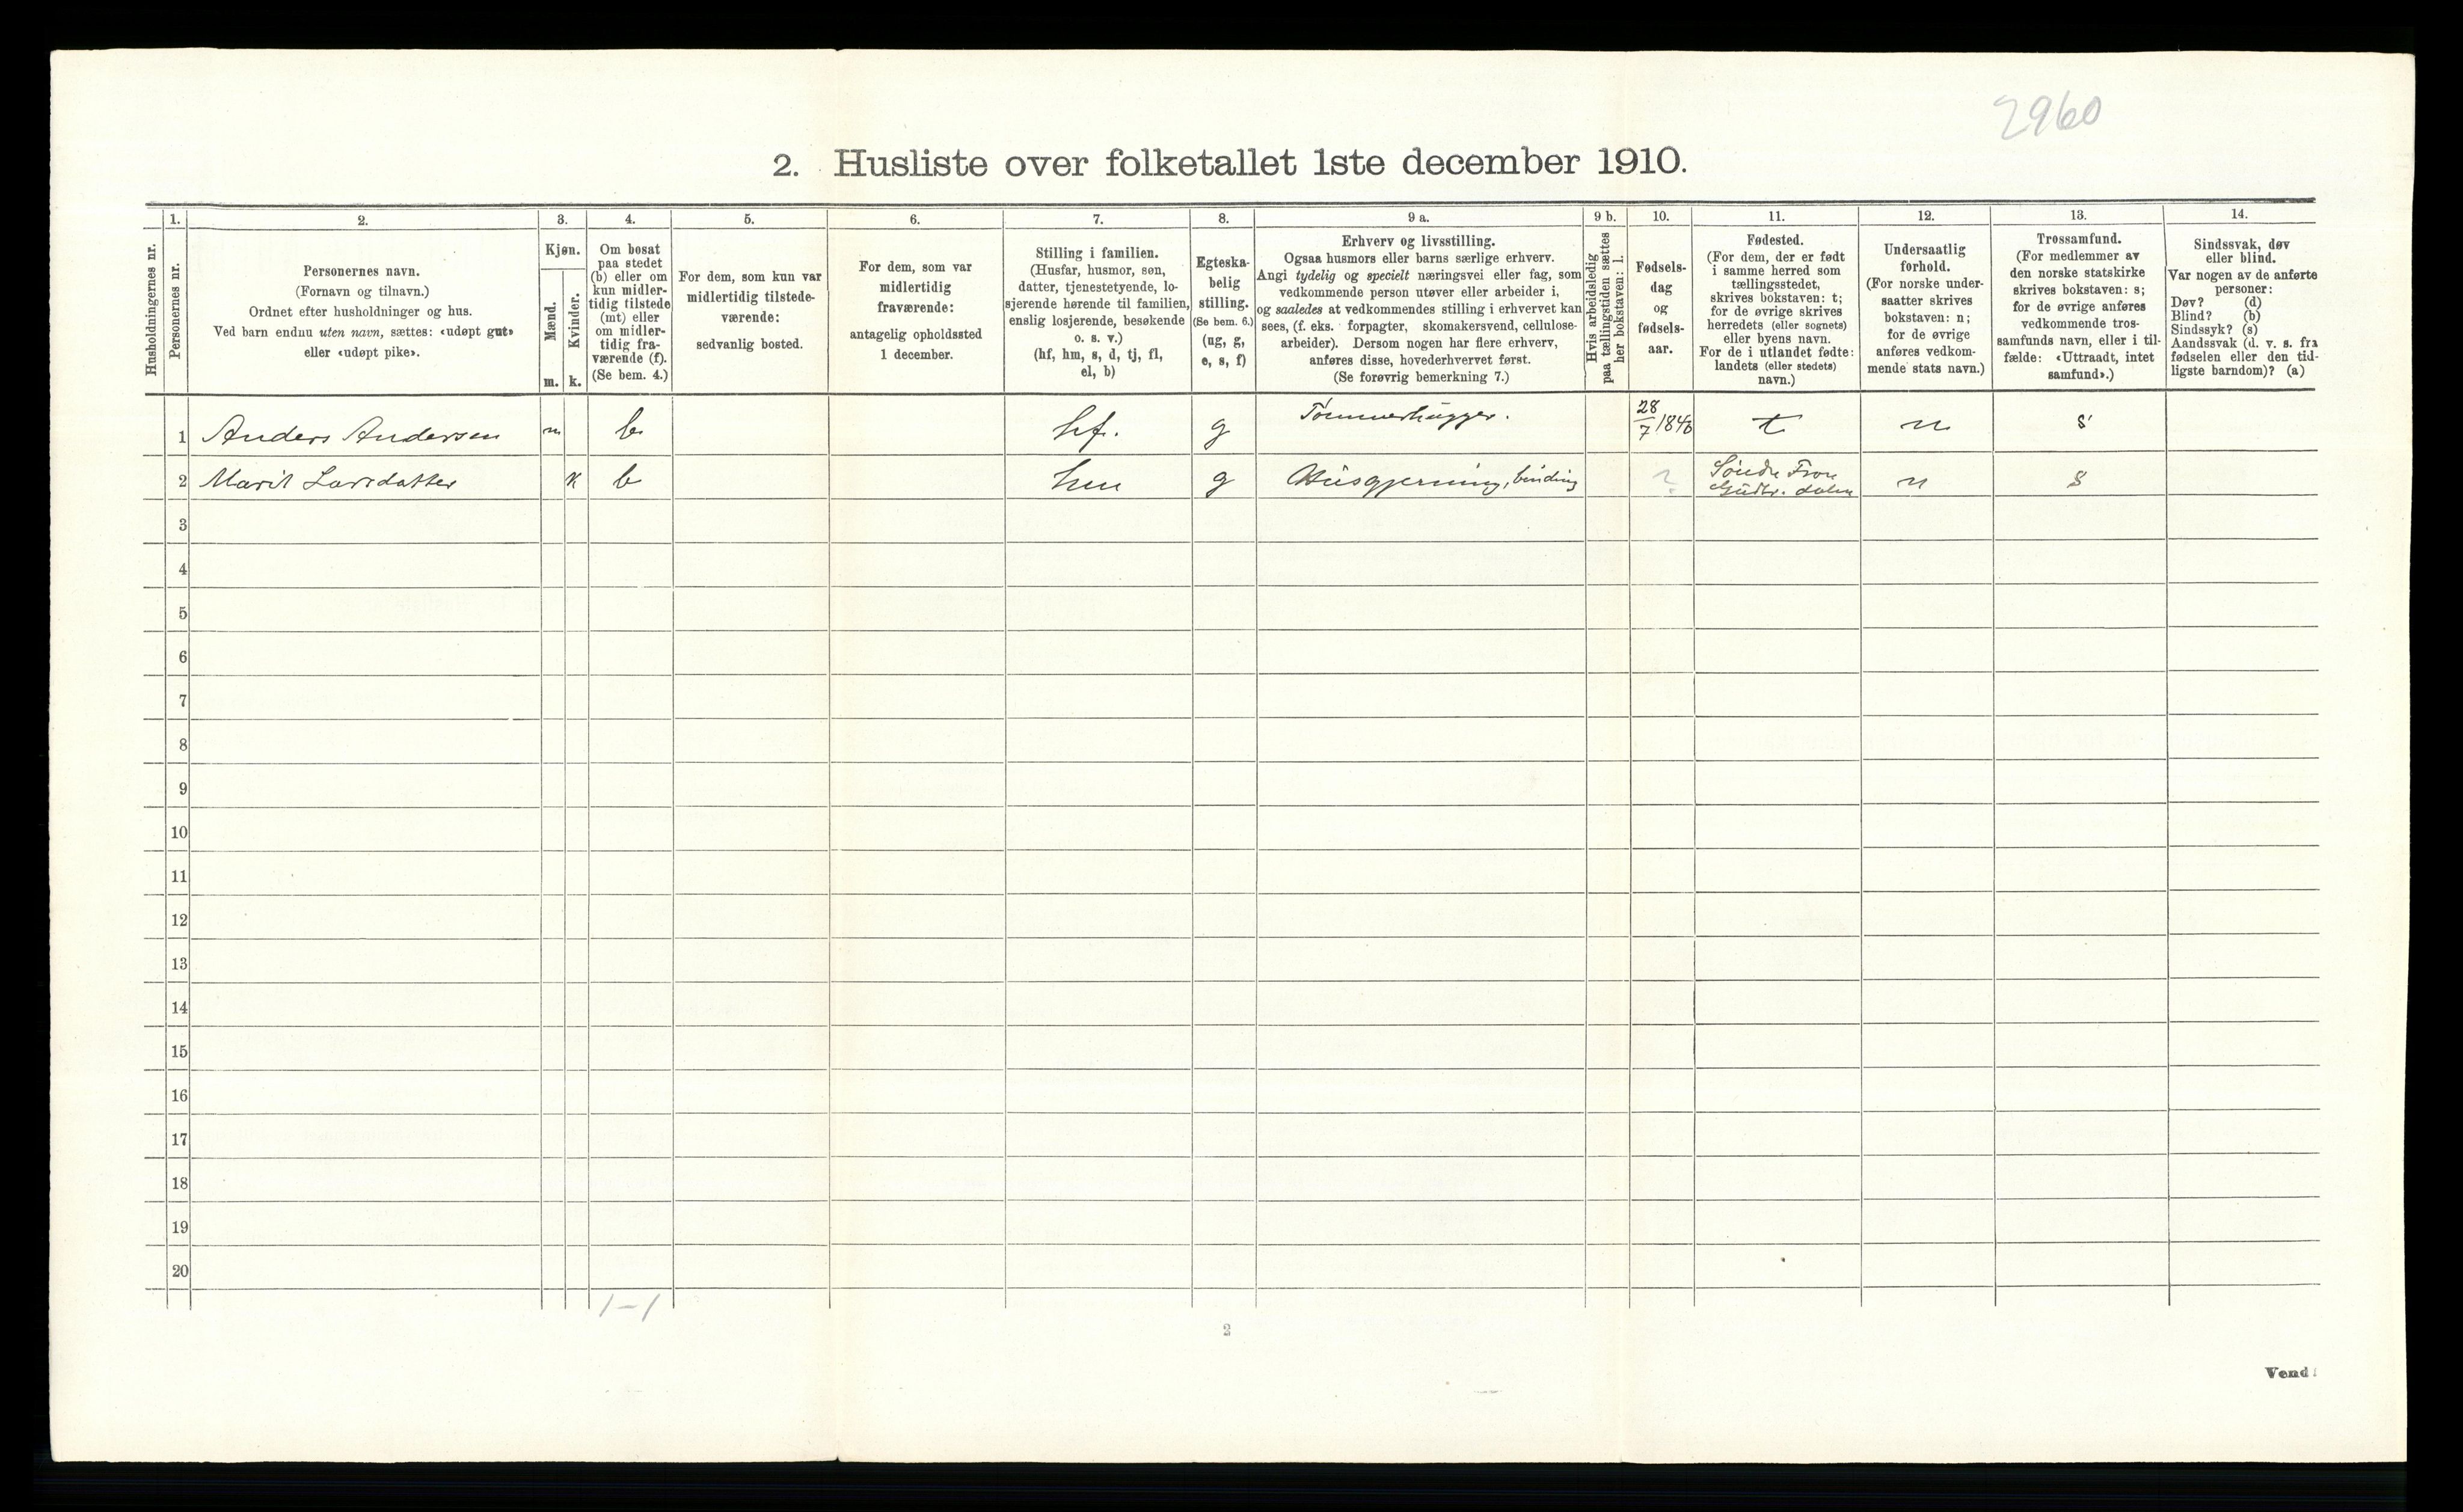 2960
2. Husliste over folketallet 1ste december 1910.
Husholdningernes nr.
1.
Personernes nr.
2.
Personernes navn.
(Fornavn og tilnavn.)
Ordnet efter husholdninger og hus.
Ved barn endnu uten navn, sættes: «udøpt gut»
eller «udøpt pike».
3.
Kjøn.
Mænd.
m.
Kvinder.
k.
4.
Om bosat
paa stedet
(b) eller om
kun midler-
tidig tilstede
(mt) eller
om midler-
tidig fra-
værende (f).
(Se bem. 4.)
5.
For dem, som kun var
midlertidig tilstede-
værende:
sedvanlig bosted.
6.
For dem, som var
midlertidig
fraværende:
antagelig opholdssted
1 december.
7.
Stilling i familien.
(Husfar, husmor, søn,
datter, tjenestetyende, lo-
sjerende hørende til familien,
enslig losjerende, besøkende
o. s. v.)
(hf, hm, s, d, tj, fl,
el, b)
8.
Egteska-
belig
stilling.
(Se bem. 6.)
(ug, g,
e, s, f)
9 a.
Erhverv og livsstilling.
Ogsaa husmors eller barns særlige erhverv.
Angi tydelig og specielt næringsvei eller fag, som
vedkommende person utøver eller arbeider i,
og saaledes at vedkommendes stilling i erhvervet kan
sees, (f. eks. forpagter, skomakersvend, cellulose-
arbeider). Dersom nogen har flere erhverv,
anføres disse, hovederhvervet først.
(Se forøvrig bemerkning 7.)
9 b.
Hvis arbeidsledig
paa tællingstiden sættes
her bokstaven: l.
10.
Fødsels-
dag
og
fødsels-
aar.
11.
Fødested.
(For dem, der er født
i samme herred som
tællingsstedet,
skrives bokstaven: t;
for de øvrige skrives
herredets (eller sognets)
eller byens navn.
For de i utlandet fødte:
landets (eller stedets)
navn.)
12.
Undersaatlig
forhold.
(For norske under-
saatter skrives
bokstaven: n;
for de øvrige
anføres vedkom-
mende stats navn.)
13.
Trossamfund.
(For medlemmer av
den norske statskirke
skrives bokstaven: s;
for de øvrige anføres
vedkommende tros-
samfunds navn, eller i til-
fælde: «Uttraadt, intet
samfund».)
14.
Sindssvak, døv
eller blind.
Var nogen av de anførte
personer:
Døv? (d)
Blind? (b)
Sindssyk? (s)
Aandssvak (d. v. s. fra
fødselen eller den tid-
ligste barndom)? (a)
1 Anders Andersen m b hf. g Tømmerhugger. 28/7 1840 t n s
2 Marit Larsdatter k b hm g Husgjerning, binding ? Søndre Fron
Gudbr. dalen n s
3
4
5
6
7
8
9
10
11
12
13
14
15
16
17
18
19
20
1-1
2
Vend!